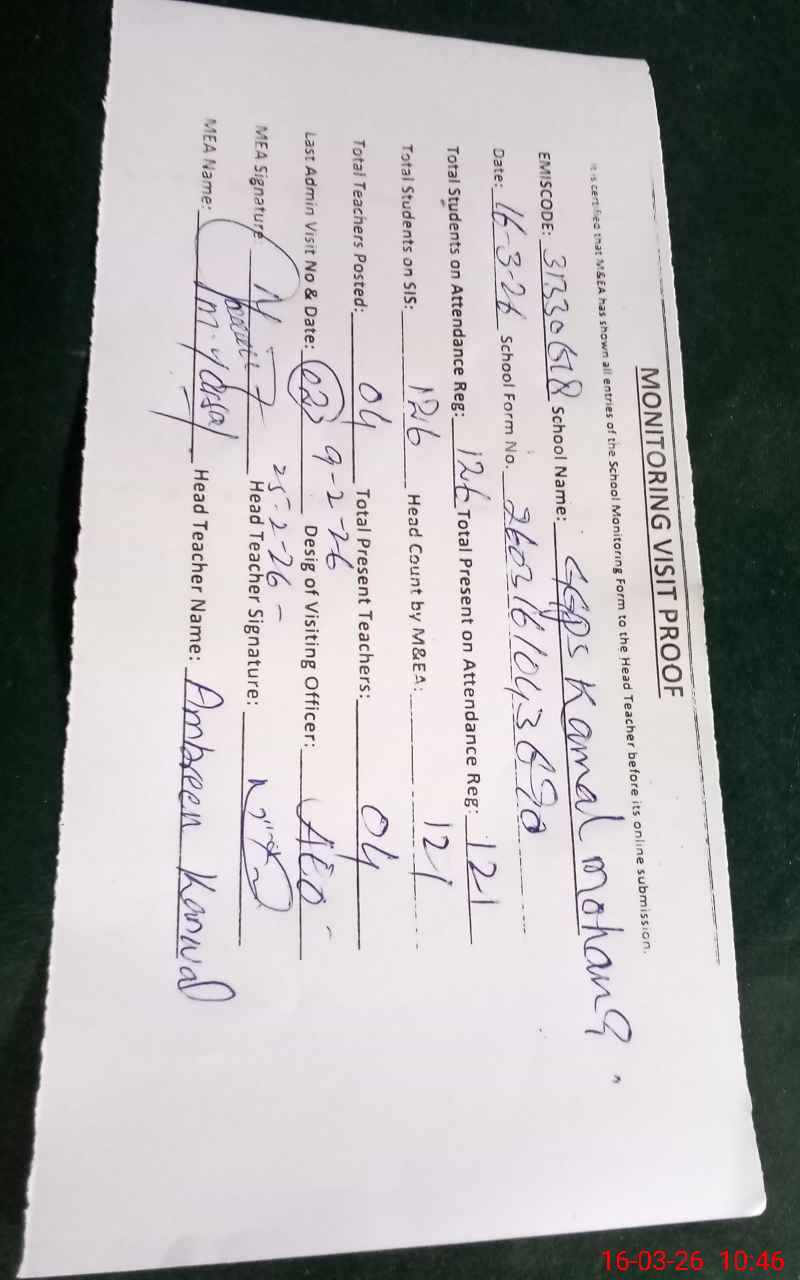 MONITORING VISIT PROOF
It is certified that M&EA has shown all entries of the School Monitoring Form to the Head Teacher before its online submission.
EMISCODE: 31330618 School Name: GGPS Kamal mohana
Date: 16-3-26 School Form No. 2603161043690
Total Students on Attendance Reg: 126 Total Present on Attendance Reg: 121
Total Students on SIS: 126 Head Count by M&EA: 121
Total Teachers Posted: 04 Total Present Teachers: 04
Last Admin Visit No & Date: 02 9-2-26 Desig of Visiting Officer: AEO
25-2-26
MEA Signature: Head Teacher Signature:
MEA Name: Head Teacher Name: Ambreen Kanwal
16-03-26 10:46